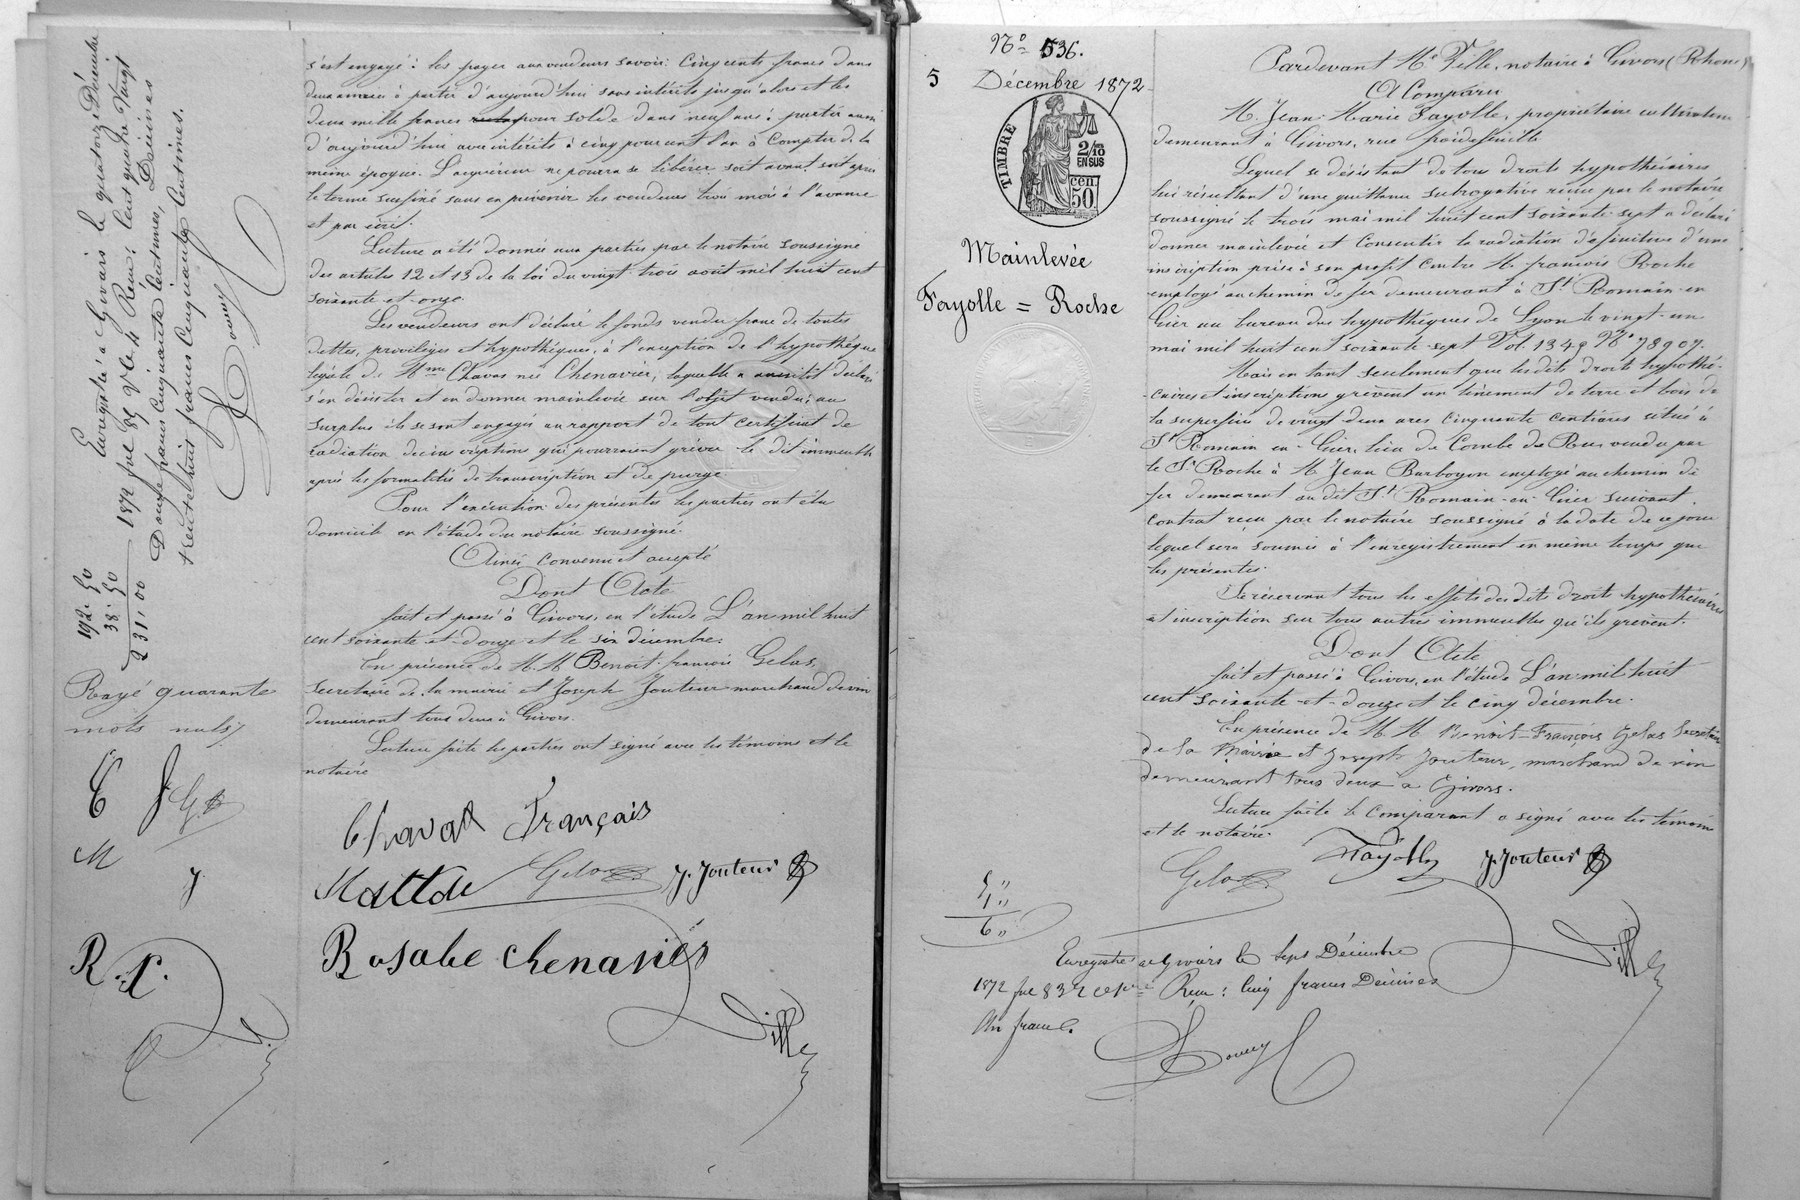 s'est engagé à les payer aux vendeurs savoir: Cinq cents francs dans
deux années à partir d'aujourd'hui sans intérêts jusqu'alors et les
deux mille francs pour solde dans neuf ans à partir aussi
d'aujourd'hui avec intérêts à cinq pour cent l'an à Compter de la
même époque. L'acquéreur ne pourra se libérer soit avant soit après
le terme susfixé sans en prévenir les vendeurs trois mois à l'avance
et par écrit.
Lecture a été donnée aux parties par le notaire soussigné
des articles 12 et 13 de la loi du vingt trois août mil huit cent
soixante-et-onze.
Les vendeurs ont déclaré le fonds vendu franc de toutes
dettes, privilèges et hypothèques, à l'exception de l'hypothèque
légale de Mme Chavas née Chenavier, laquelle a aussitôt déclaré
s'en désister et en donner mainlevée sur l'objet vendu; au
surplus ils se sont engagés au rapport de tout certificat de
radiation des inscriptions qui pourraient grever le dit immeuble
après les formalités de transcription et de purge.
Pour l'exécution des présentes les parties ont élu
domicile en l'étude du notaire soussigné.
Ainsi convenu et accepté
Dont Acte
fait et passé à Givors, en l'étude L'an mil huit
cent soixante-et-douze et le six décembre.
En présence de M.M. Benoit-françois Gelas,
secrétaire de la mairie et Joseph Jouteur marchand de vin
demeurant tous deux à Givors.
Lecture faite les parties ont signé avec les témoins et le
notaire
Chavas Français
Gelas J. Jouteur
Rosalie Chenavier
Ville
Enregistré à Givors le quatorze Décembre
1872 Reçu: Cent quatre Vingt
Douze francs Cinquante Centimes, Décimes
trente huit francs Cinquante Centimes.
192.50
38.50
231.00
Rayé quarante
mots nuls
C F G
M J
R.C.
No 536.
5 Décembre 1872
TIMBRE
2/10 EN SUS
50 cen.
Mainlevée
Fayolle = Roche
Pardevant Me Ville, notaire à Givors (Rhône)
A Comparu
M. Jean-Marie Fayolle, propriétaire cultivateur
demeurant à Givors, rue
Lequel se désistant de tous droits hypothécaires
lui résultant d'une quittance subrogative reçue par le notaire
soussigné le trois mai mil huit cent soixante-sept a déclaré
donner mainlevée et Consentir la radiation définitive d'une
inscription prise à son profit Contre M. françois Roche
employé au chemin de fer demeurant à St Romain-en
Gier au bureau des hypothèques de Lyon le vingt-un
mai mil huit cent soixante-sept Vol. 1349 No 78907.
Mais en tant seulement que les dits droits hypothé-
-caires et inscriptions grèvent un tènement de terre et bois de
la superficie de vingt deux ares cinquante centiares situé à
St Romain-en-Gier, lieu de Combe du Roux vendu par
le Sr Roche à M. Jean Barboyon employé au chemin de
fer demeurant au dit St Romain-en-Gier suivant
Contrat reçu par le notaire soussigné à la date de ce jour
lequel sera soumis à l'enregistrement en même temps que
les présentes.
Se réservant tous les effets des dits droits hypothécaires
et inscription sur tous autres immeubles qu'ils grèvent.
Dont Acte
fait et passé à Givors, en l'étude L'an mil huit
cent soixante-et-douze et le cinq décembre.
En présence de M.M. Benoit-François Gelas Secrétaire
de la Mairie et Joseph Jouteur, marchand de vin
demeurant tous deux à Givors.
Lecture faite le Comparant a signé avec les témoins
et le notaire.
Gelas Fayolle J. Jouteur
Ville
5 "
1 "
6 "
Enregistré à Givors le Sept Décembre
1872 Reçu: Cinq francs Décimes
Un franc.